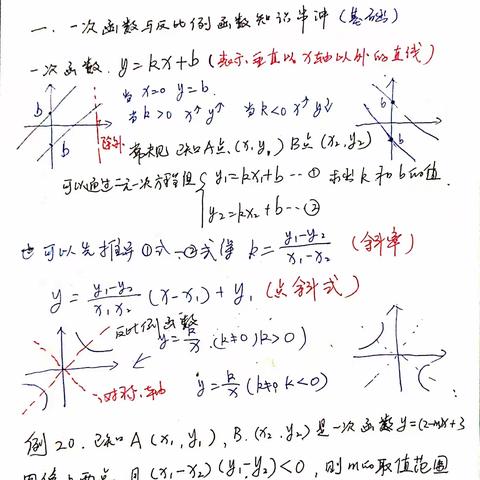 一、一次函数与反比例函数知识串冲(基础)
一次函数. y=kx+b (表示垂直以x轴以外的直线)
当 x=0 y=b.
当 k>0 x↑ y↑ 当 k<0 x↑ y↓
b
b
除外
b
b
常规 已知A点(x₁y₁) B点(x₂y₂)
可以通过二元一次方程组 { y₁=kx₁+b…① 求出k和b的值.
y₂=kx₂+b…②
可以先推导①式-②式得 k=(y₁-y₂)/(x₁-x₂) (斜率)
y=(y₁-y₂)/(x₁x₂) (x-x₁)+y₁ (点斜式)
反比例函数
y=k/x (k≠0,k>0)
y=k/x (k≠0 k<0)
对称轴
例20. 已知A(x₁,y₁), B.(x₂.y₂)是一次函数y=(2-m)x+3
图像上两点,且(x₁-x₂)(y₁-y₂)<0,则m的取值范围